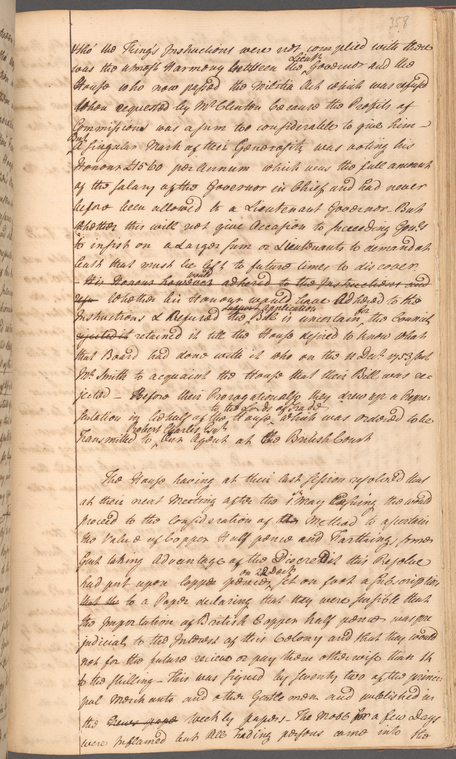 258
tho' the King's Instructions were not complied with there
was the utmost Harmony between the Lieut. Governor and the
House who now passed the Militia Act which was refused
when requested by Mr Clinton because the Profits of
Commissions was a sum too considerable to give him —
But A singular Mark of their Generosity was voting his
Honour £1560 per Annum which was the full amount
of the Salary of the Governor in Chief and had never
before been allowed to a Lieutenant Governor — But
whether this will not give Occasion to succeeding Govrs
to insist on a Larger sum or Lieutenants to demand at
least that must be left to future times to discover
His Honour however adhered to the Instructions and
Whether his Honour would have Adhered to the
Instructions & Refused the Bill upon Application is uncertain for the Council
rejected it retained it till the House desired to know what
that Board had done with it who on the 11 Decr. 1753 sent
Mr. Smith to acquaint the House that their Bill was re-
jected — Before their Prorogation also they drew up a Repre-
sentation in behalf of the House to the Lords of Trade which was ordered to be
Transmitted to Robert Charles Esqr. Agent at the British Court
The House having at their last session resolved that
at their next Meeting after the 1st May Ensuing they would
proceed to the Consideration of the Method to ascertain
the Value of Copper Half pence and Farthings, some
Govt taking Advantage of the Discredit this Resolve
had put upon Copper pence set on foot a subscription
that the to a Paper declaring that they were sensible that
the Importation of British Copper half pence was pre-
judicial to the Interest of this Colony and that they would
not for the future receive or pay them otherwise than 14
to the shilling — This was signed by seventy two of the princi-
pal Merchants and other Gentlemen and published in
the News pape Weekly papers — The Mob for a few days
were inflamed but All trading persons came into the